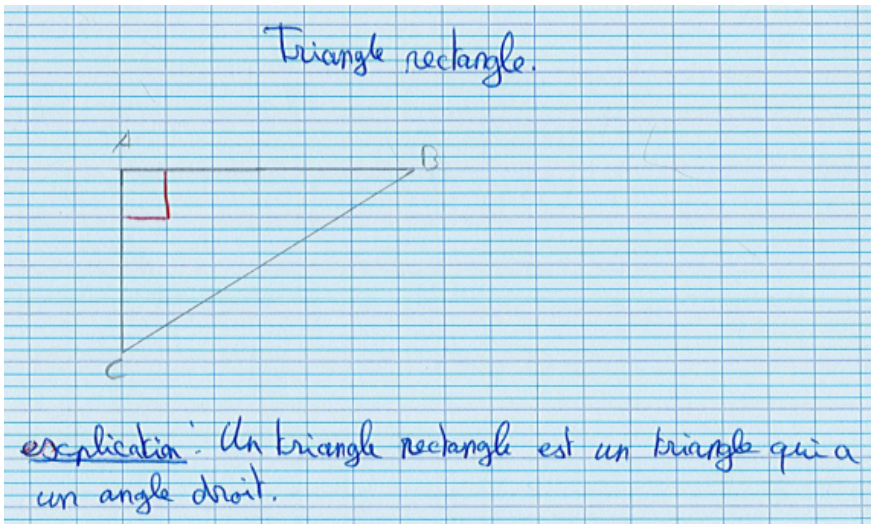 Triangle rectangle.
A
B
C
explication : Un triangle rectangle est un triangle qui a
un angle droit.